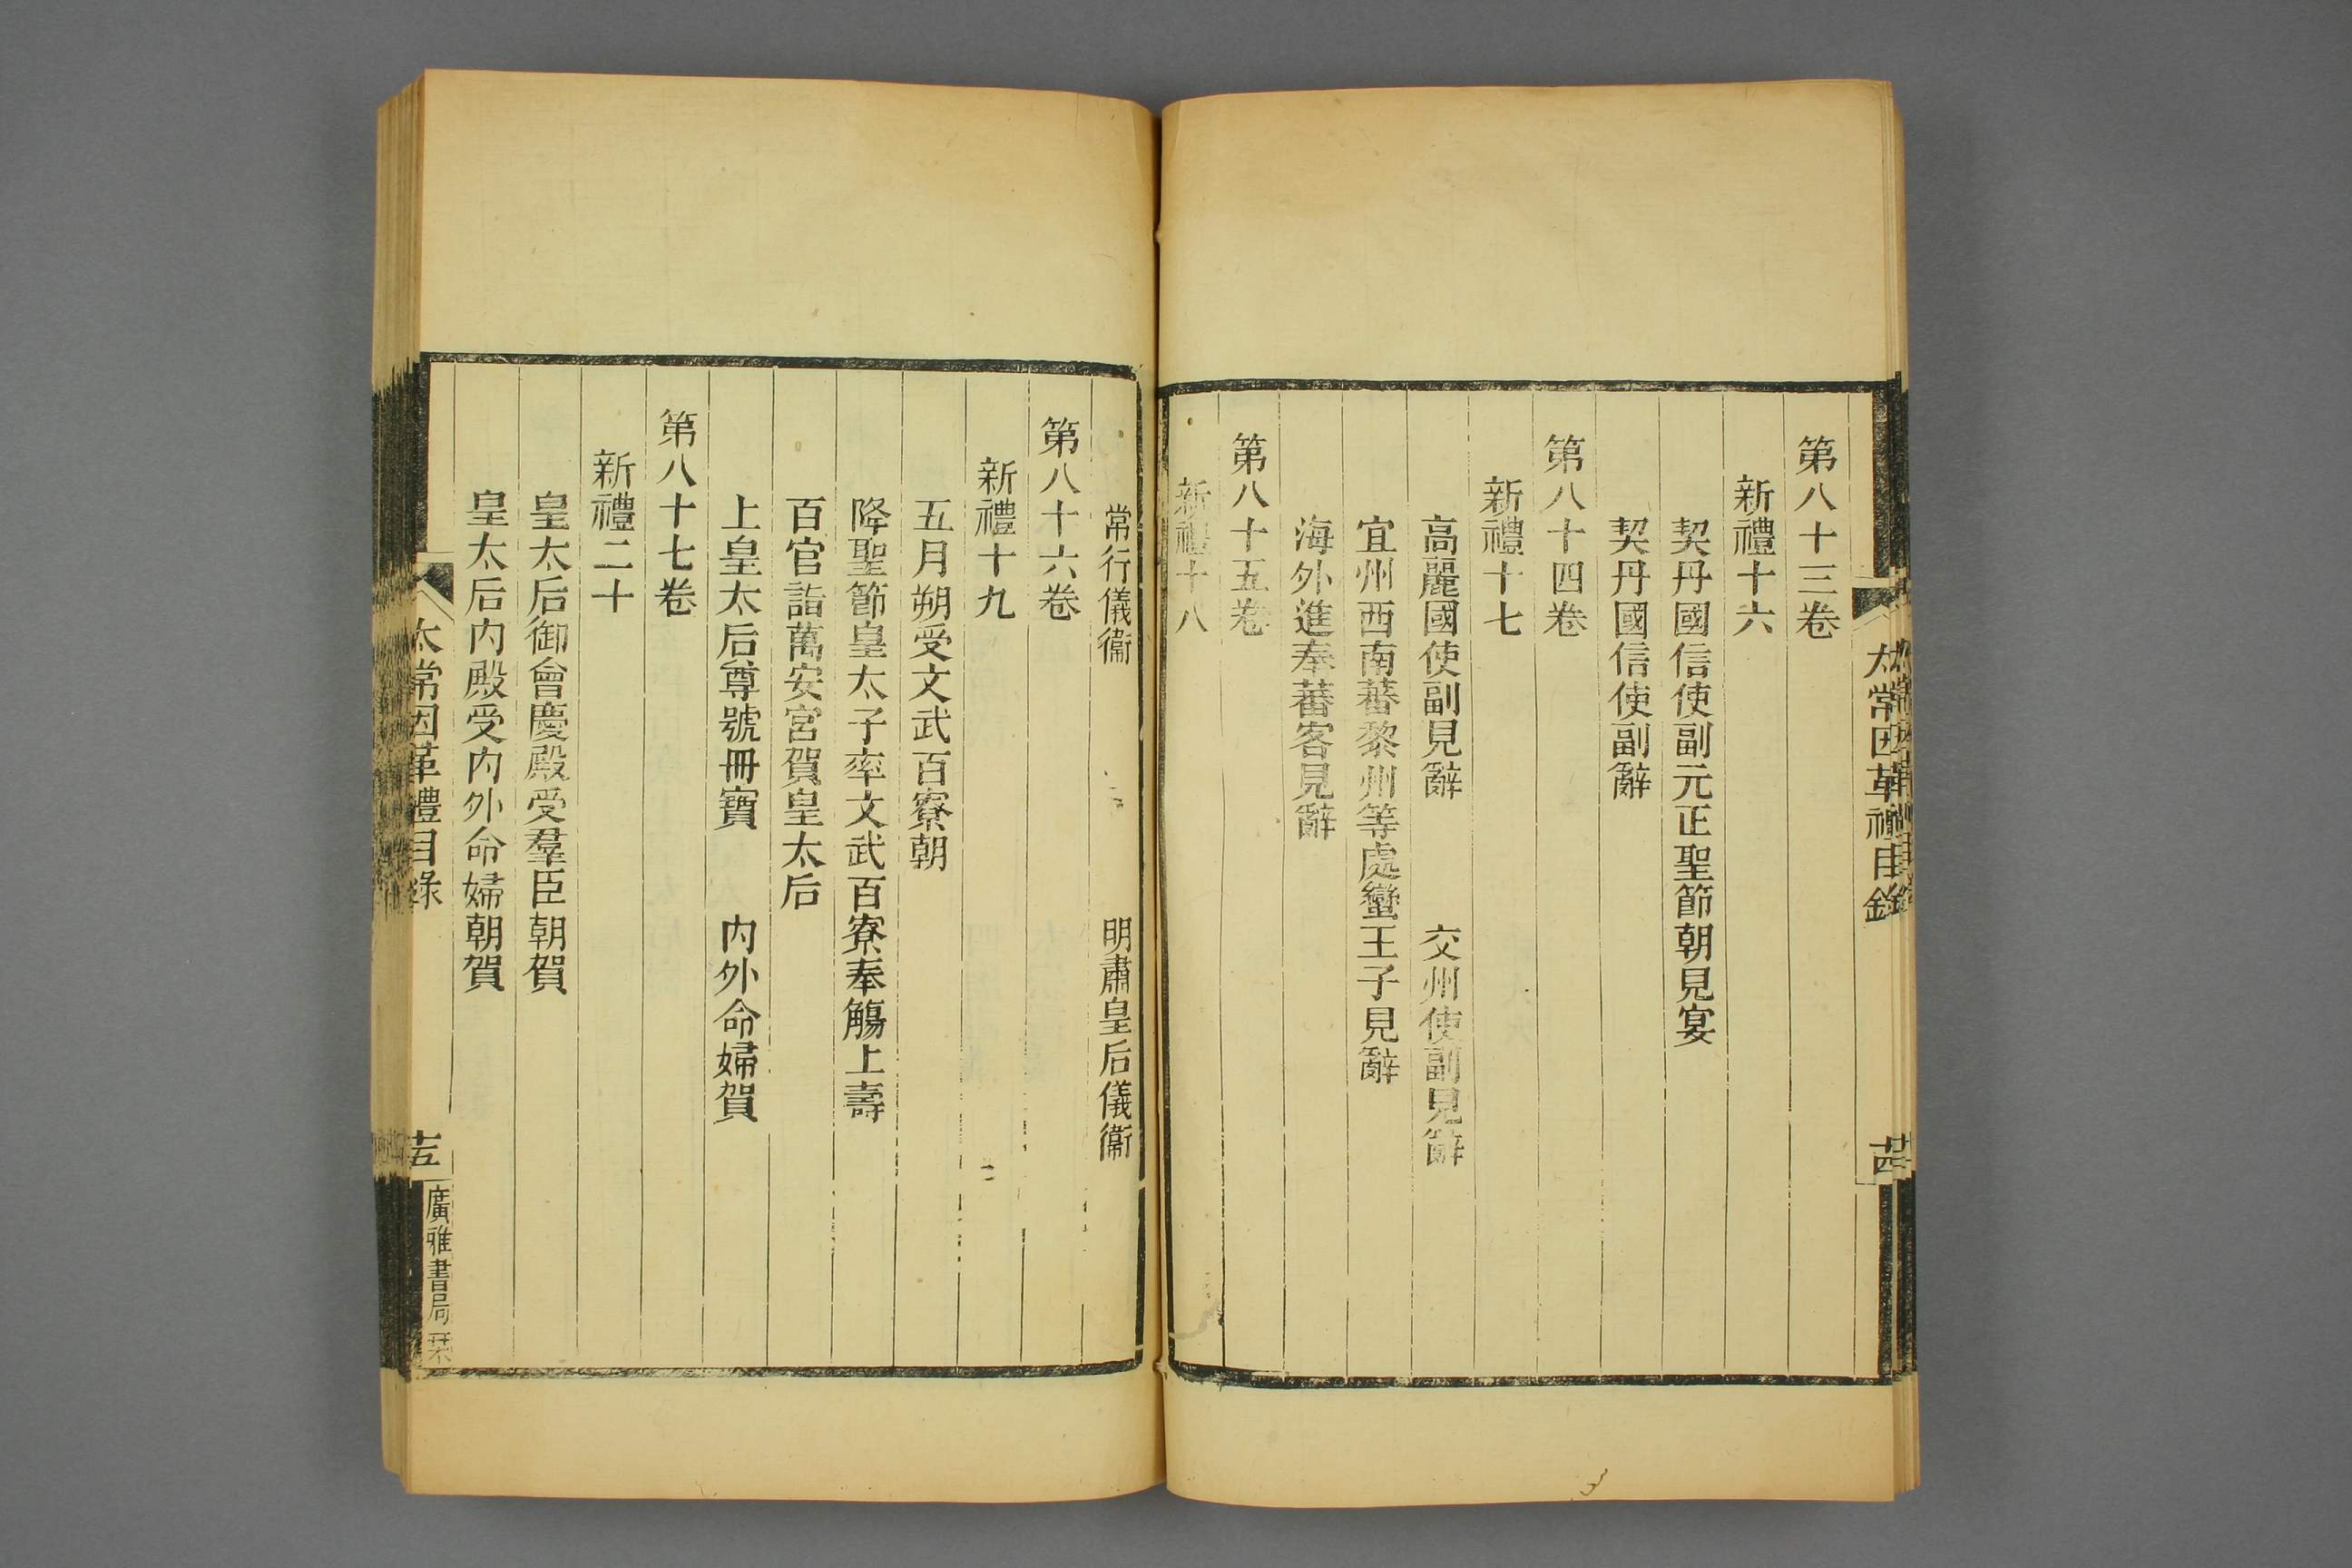 第八十三卷
新禮十六
契丹國信使副元正聖節朝見宴
契丹國信使副辭
第八十四卷
新禮十七
高麗國使副見辭　交州使副見辭
宜州西南蕃黎州等處蠻王子見辭
海外進奉蕃客見辭
第八十五卷
新禮十八
太常因革禮目錄
十四
常行儀衞　明肅皇后儀衞
第八十六卷
新禮十九
五月朔受文武百寮朝
降聖節皇太子率文武百寮奉觴上壽
百官詣萬安宮賀皇太后
上皇太后尊號冊寶　内外命婦賀
第八十七卷
新禮二十
皇太后御會慶殿受羣臣朝賀
皇太后内殿受内外命婦朝賀
太常因革禮目錄
十五
廣雅書局栞